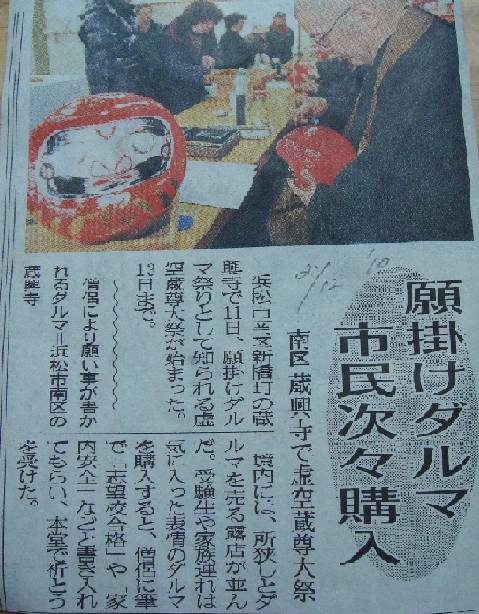 願掛けダルマ
市民次々購入
南区 蔵興寺で虚空蔵尊大祭
2/12 '10
浜松市南区新橋町の蔵
興寺で11日、願掛けダル
マ祭りとして知られる虚
空蔵尊大祭が始まった。
13日まで。
僧侶により願い事が書か
れるダルマ＝浜松市南区の
蔵興寺
境内には、所狭しとダ
ルマを売る露店が並ん
だ。受験生や家族連れは
気に入った表情のダルマ
を購入すると、僧侶に筆
で「志望校合格」や「家
内安全」などと書き入れ
てもらい、本堂で祈とう
を受けた。